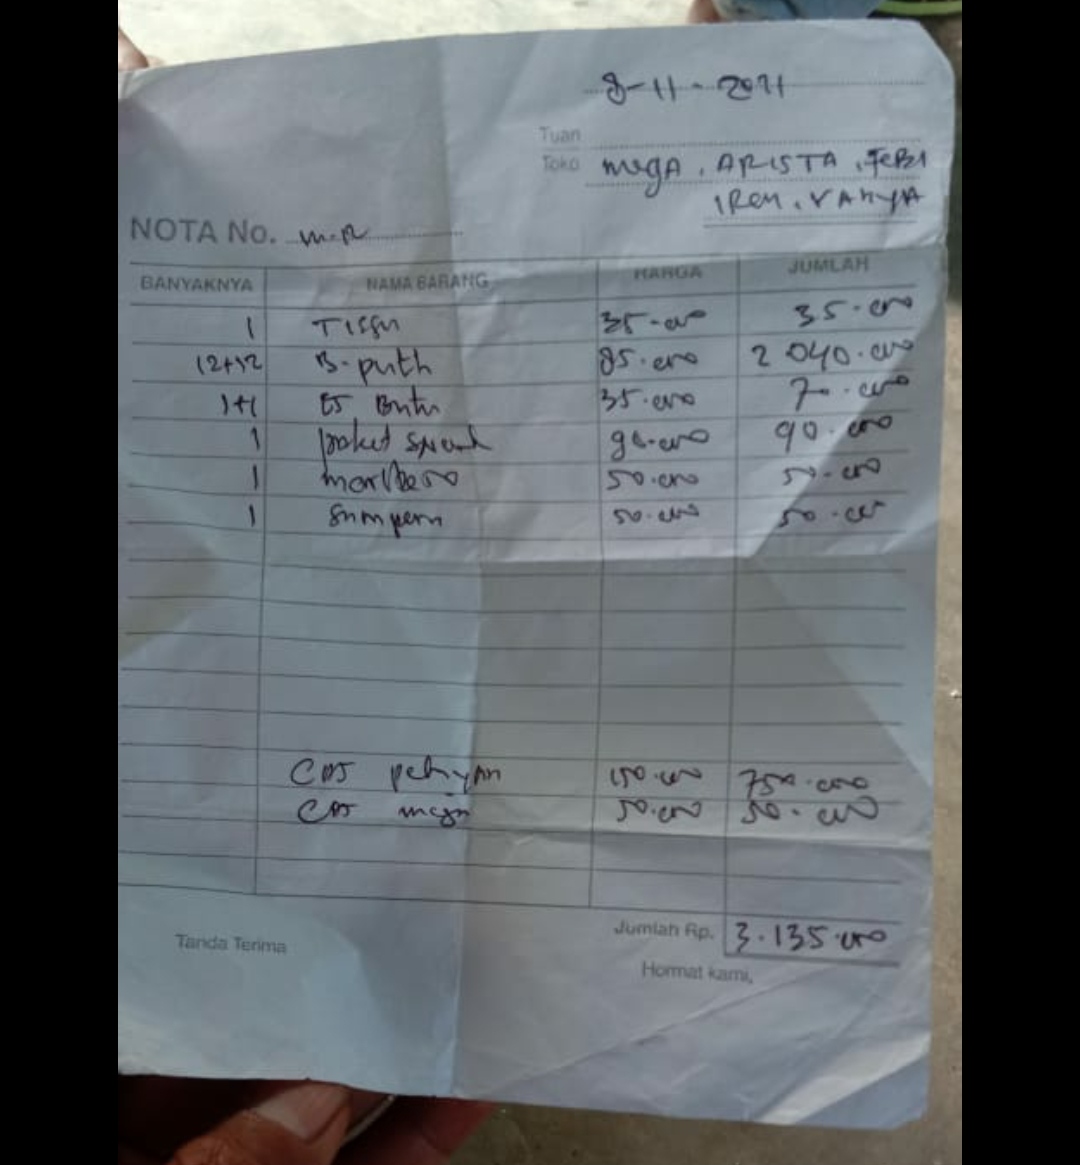 8-11-2021
Tuan
Toko MEGA, ARISTA, FEBI
IREN, VANYA
NOTA No. M-R
BANYAKNYA NAMA BARANG HARGA JUMLAH
1 Tissu 35.000 35.000
12+12 B-putih 85.000 2 040.000
1+1 ES Batu 35.000 70.000
1 90.000 90.000
1 marlboro 50.000 50.000
1 50.000 50.000
Cas 150.000 750.000
Cas meja 50.000 50.000
Jumlah Rp. 3.135.000
Tanda Terima
Hormat kami,